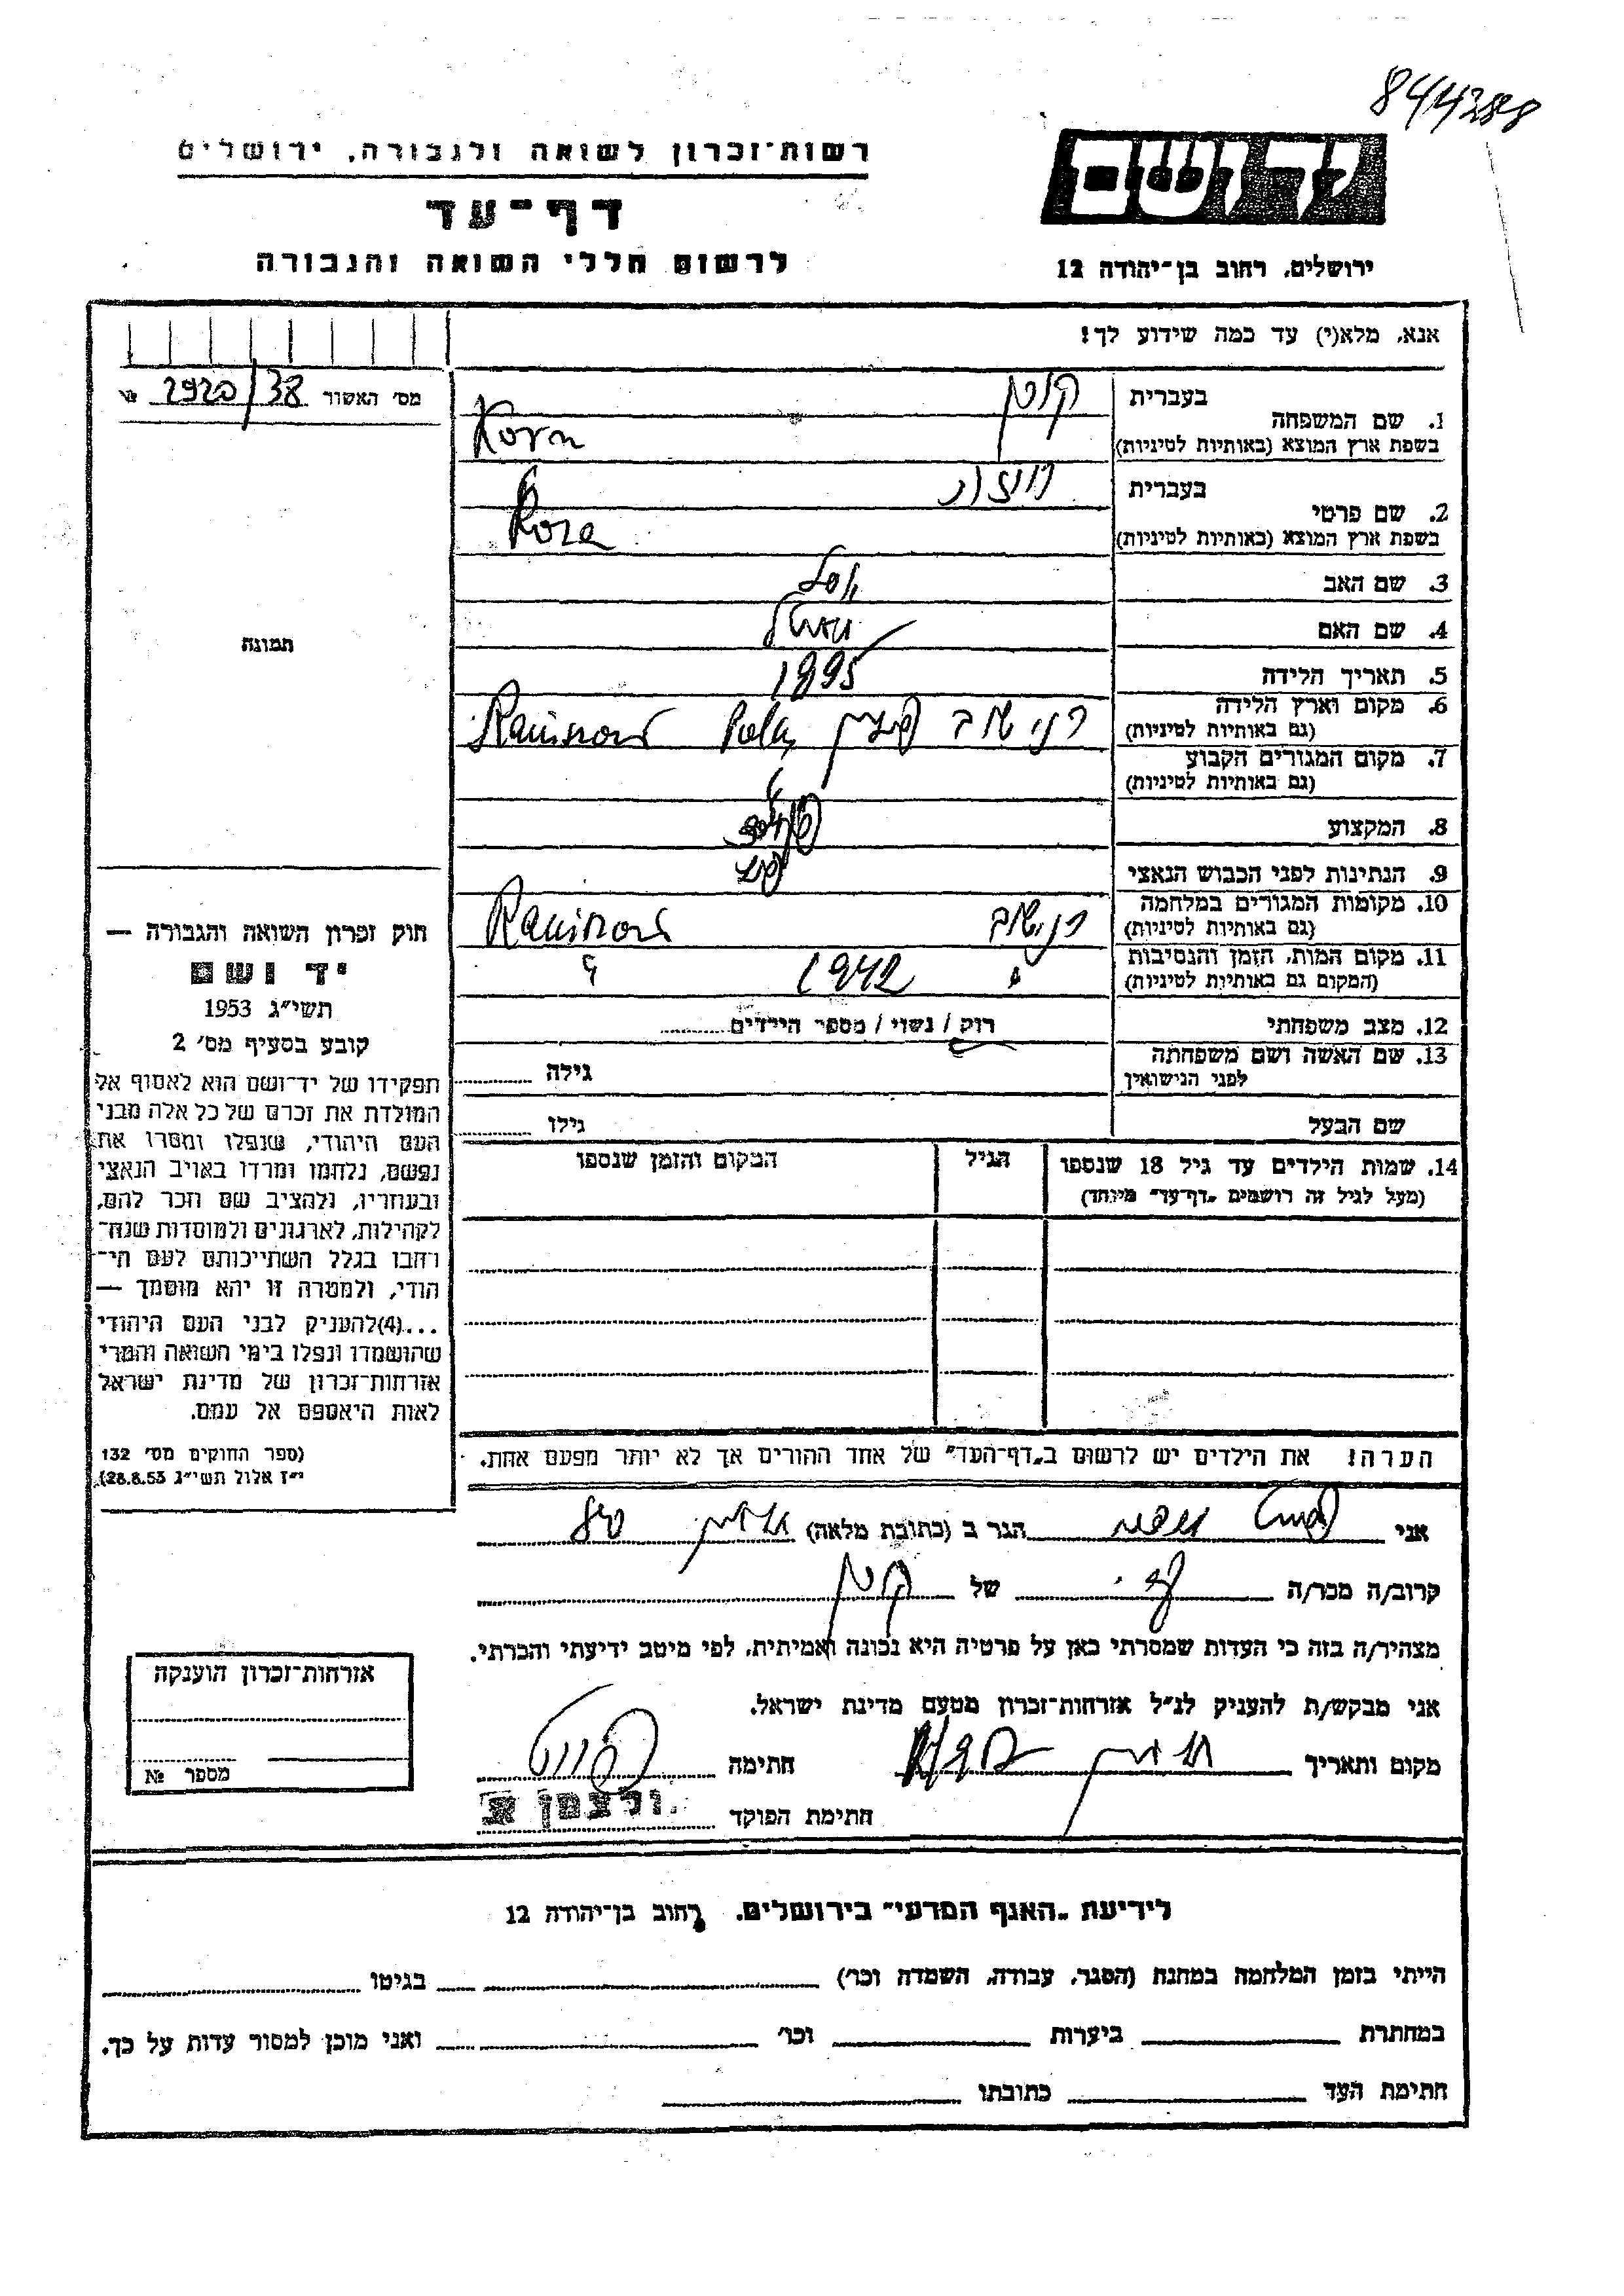 844288
יד ושם
רשות־זכרון לשואה ולגבורה, ירושלים
דף־עד
לרשום חללי השואה והגבורה
ירושלים, רחוב בן־יהודה 12
אנא, מלא(י) עד כמה שידוע לך!
מס׳ האשור 2920/38 №
בעברית
1. שם המשפחה
בשפת ארץ המוצא (באותיות לטיניות)
בעברית
2. שם פרטי
בשפת ארץ המוצא (באותיות לטיניות) Roza
3. שם האב
4. שם האם
5. תאריך הלידה 1895
6. מקום וארץ הלידה
(גם באותיות לטיניות)
7. מקום המגורים הקבוע
(גם באותיות לטיניות)
8. המקצוע
9. הנתינות לפני הכבוש הנאצי
10. מקומות המגורים במלחמה
(גם באותיות לטיניות)
11. מקום המות, הזמן והנסיבות 1942
(המקום גם באותיות לטיניות)
12. מצב משפחתי רווק / נשוי / מספר הילדים
13. שם האשה ושם משפחתה גילה
לפני הנישואין
שם הבעל גילו
14. שמות הילדים עד גיל 18 שנספו הגיל המקום והזמן שנספו
(מעל לגיל זה רושמים „דף־עד״ מיוחד)
הערה! את הילדים יש לרשום ב„דף־העד״ של אחד ההורים אך לא יותר מפעם אחת.
תמונה
חוק זכרון השואה והגבורה —
יד ושם
תשי״ג 1953
קובע בסעיף מס׳ 2
תפקידו של יד־ושם הוא לאסוף אל
המולדת את זכרם של כל אלה מבני
העם היהודי, שנפלו ומסרו את
נפשם, נלחמו ומרדו באויב הנאצי
ובעוזריו, ולהציב שם וזכר להם,
לקהילות, לארגונים ולמוסדות שנח־
רבו בגלל השתייכותם לעם הי־
הודי, ולמטרה זו יהא מוסמך —
...(4)להעניק לבני העם היהודי
שהושמדו ונפלו בימי השואה והמרי
אזרחות־זכרון של מדינת ישראל
לאות היאספם אל עמם.
(ספר החוקים מס׳ 132
י״ז אלול תשי״ג 28.8.53)
אני הגר ב (כתובת מלאה)
קרוב/ה מכר/ה של
מצהיר/ה בזה כי העדות שמסרתי כאן על פרטיה היא נכונה ואמיתית, לפי מיטב ידיעתי והכרתי.
אני מבקש/ת להעניק לנ״ל אזרחות־זכרון מטעם מדינת ישראל.
מקום ותאריך חתימה
חתימת הפוקד
אזרחות־זכרון הוענקה
מספר №
לידיעת „האגף המדעי״ בירושלים, רחוב בן־יהודה 12
הייתי בזמן המלחמה במחנה (הסגר, עבודה, השמדה וכו׳) בגיטו
במחתרת ביערות וכו׳ ואני מוכן למסור עדות על כך.
חתימת העד כתובתו